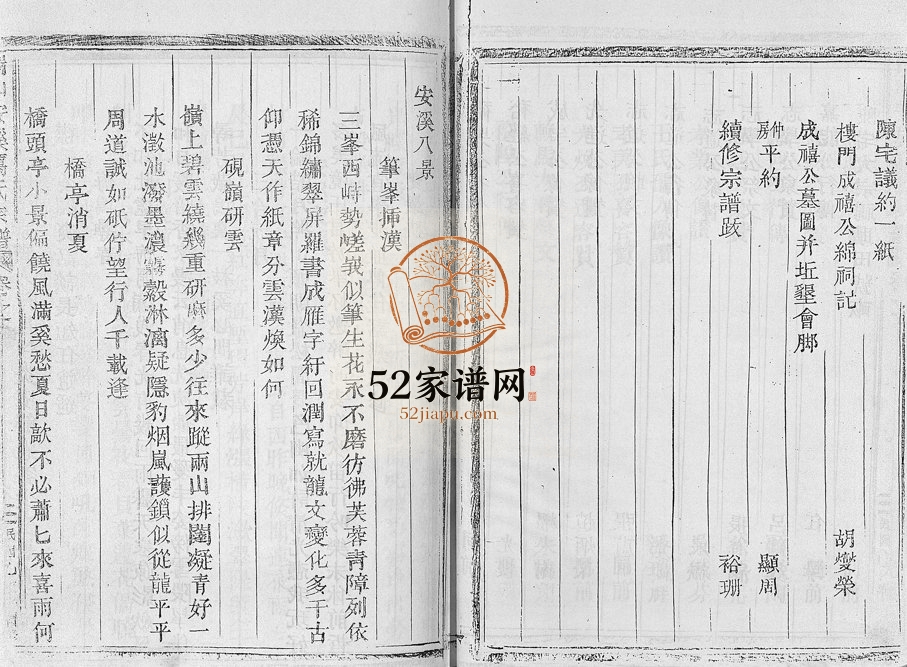 陳宅議約一紙
樓門成禧公綿祠記 胡燮榮
成禧公墓圖并坵墾會脚
仲房平約 顯周
續修宗譜跋 裕珊
一
安溪八景
筆峯揷漢
三峯西峙勢嵯峩似筆生花永不磨彷彿芙蓉靑障列依
稀錦繡翠屏羅書成雁字紆回潤寫就龍文變化多千古
仰憑天作紙章分雲漢煥如何
硯嶺研雲
嶺上碧雲繞幾重研磨多少往來蹤兩山排闥凝靑好一
水澂池潑墨濃霧縠淋漓疑隱豹烟嵐護鎖似從龍平平
周道誠如砥佇望行人千載逢
橋亭消夏
橋頭亭小景偏饒風滿奚愁夏日歊不必蕭匕來喜雨何
安溪
氏宗譜
52家谱网
52jiapu.com